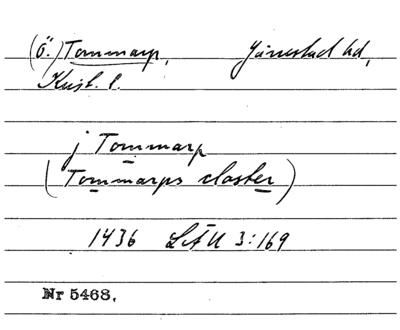 (Ö.) Tommarp, Järrestad hd,
Krist. l.
j Tommarp
(Tommarps closter)
1436 LÄU 3:169
Nr 5468.